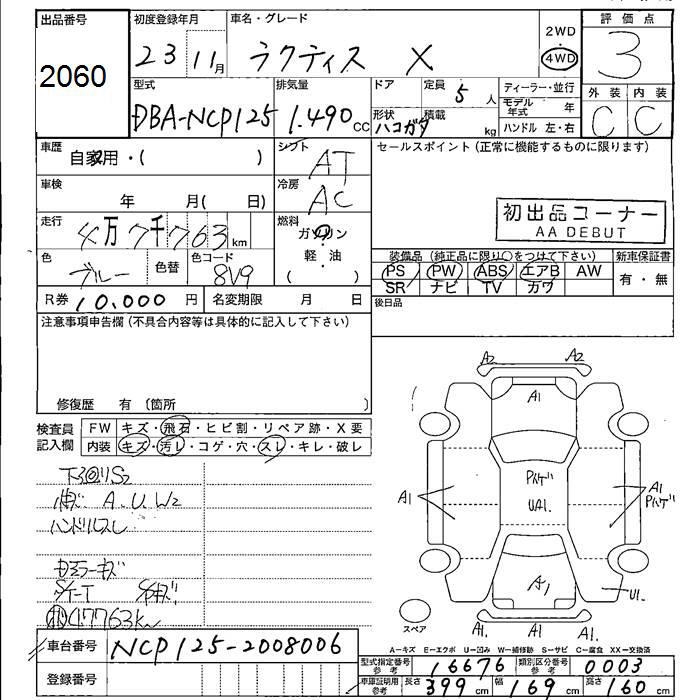 出品番号
2060
初度登録年月
23 11月
車名・グレード
ラクティス X
2WD
4WD
評価点
3
外装 内装
C C
型式
DBA-NCP125
排気量
1.490cc
ドア 定員 5人
形状 積載
ハコガタ kg
ディーラー・並行
モデル年式 年
ハンドル 左・右
車歴
自家用・( )
シフト
AT
セールスポイント (正常に機能するものに限ります)
車検
年 月( 日)
冷房
AC
初出品コーナー
AA DEBUT
走行
4万7千763km
燃料
ガソリン
・
軽 油
( )
色
ブルー
色替
色コード
8V9
装備品(純正品に限り○をつけて下さい)
新車保証書
PS PW ABS エアB AW
有・無
SR ナビ TV カワ
R券 10.000円
名変期限 月 日
後日品
注意事項申告欄(不具合内容等は具体的に記入して下さい)
修復歴 有 〔箇所 〕
検査員
記入欄
FW キズ・飛石・ヒビ割・リペア跡・X要
内装 キズ・汚レ・コゲ・穴・スレ・キレ・破レ
下回りS2
A.U.W2
ハンドルスレ
ミラーキズ
47763km
A2 A2
A1
A1
Pハゲ
UA1.
A1
Pハゲ
A1
U1.
スペア
A1. A1 A1.
A-キズ E-エクボ U-凹み W-補修跡 S-サビ C-腐食 XX-交換済
車台番号 NCP125-2008006
登録番号
型式指定番号 参考 16676
類別区分番号 参考 0003
車庫証明用 参考 長さ 399cm 幅 169cm 高さ 160cm